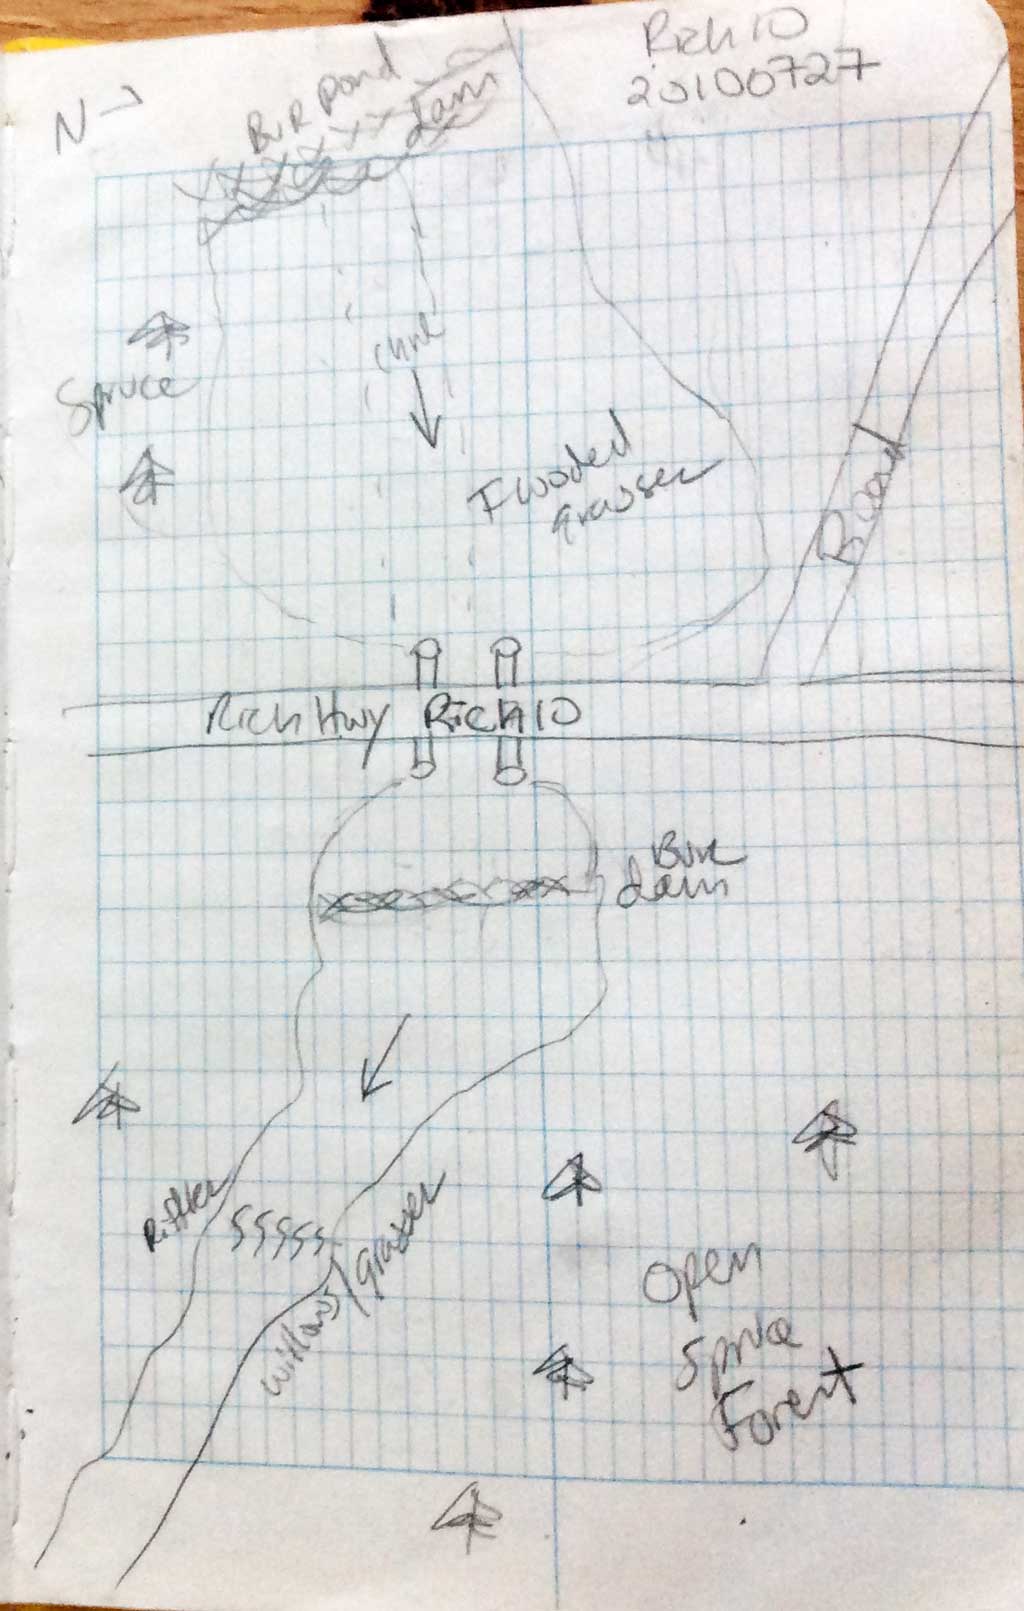 Rich 10
20100727
N→
BVR Pond
dam
Spruce
chnl
Flooded
grasses
Road
Rich Hwy Rich 10
BVR
dam
Riffles
SSSSS
willows/grasses
Open
Spruce
Forest